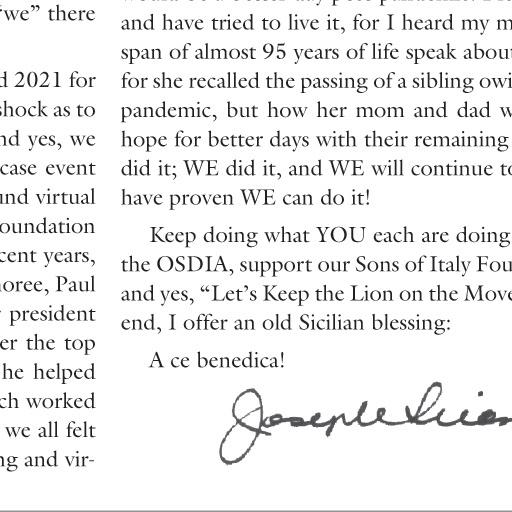 “we” there
d 2021 for
shock as to
nd yes, we
case event
und virtual
oundation
cent years,
noree, Paul
president
er the top
he helped
ch worked
we all felt
ng and vir-
and have tried to live it, for I heard my m
span of almost 95 years of life speak abou
for she recalled the passing of a sibling owi
pandemic, but how her mom and dad w
hope for better days with their remaining
did it; WE did it, and WE will continue to
have proven WE can do it!
Keep doing what YOU each are doing
the OSDIA, support our Sons of Italy Fou
and yes, “Let’s Keep the Lion on the Move
end, I offer an old Sicilian blessing:
A ce benedica!
Joseph